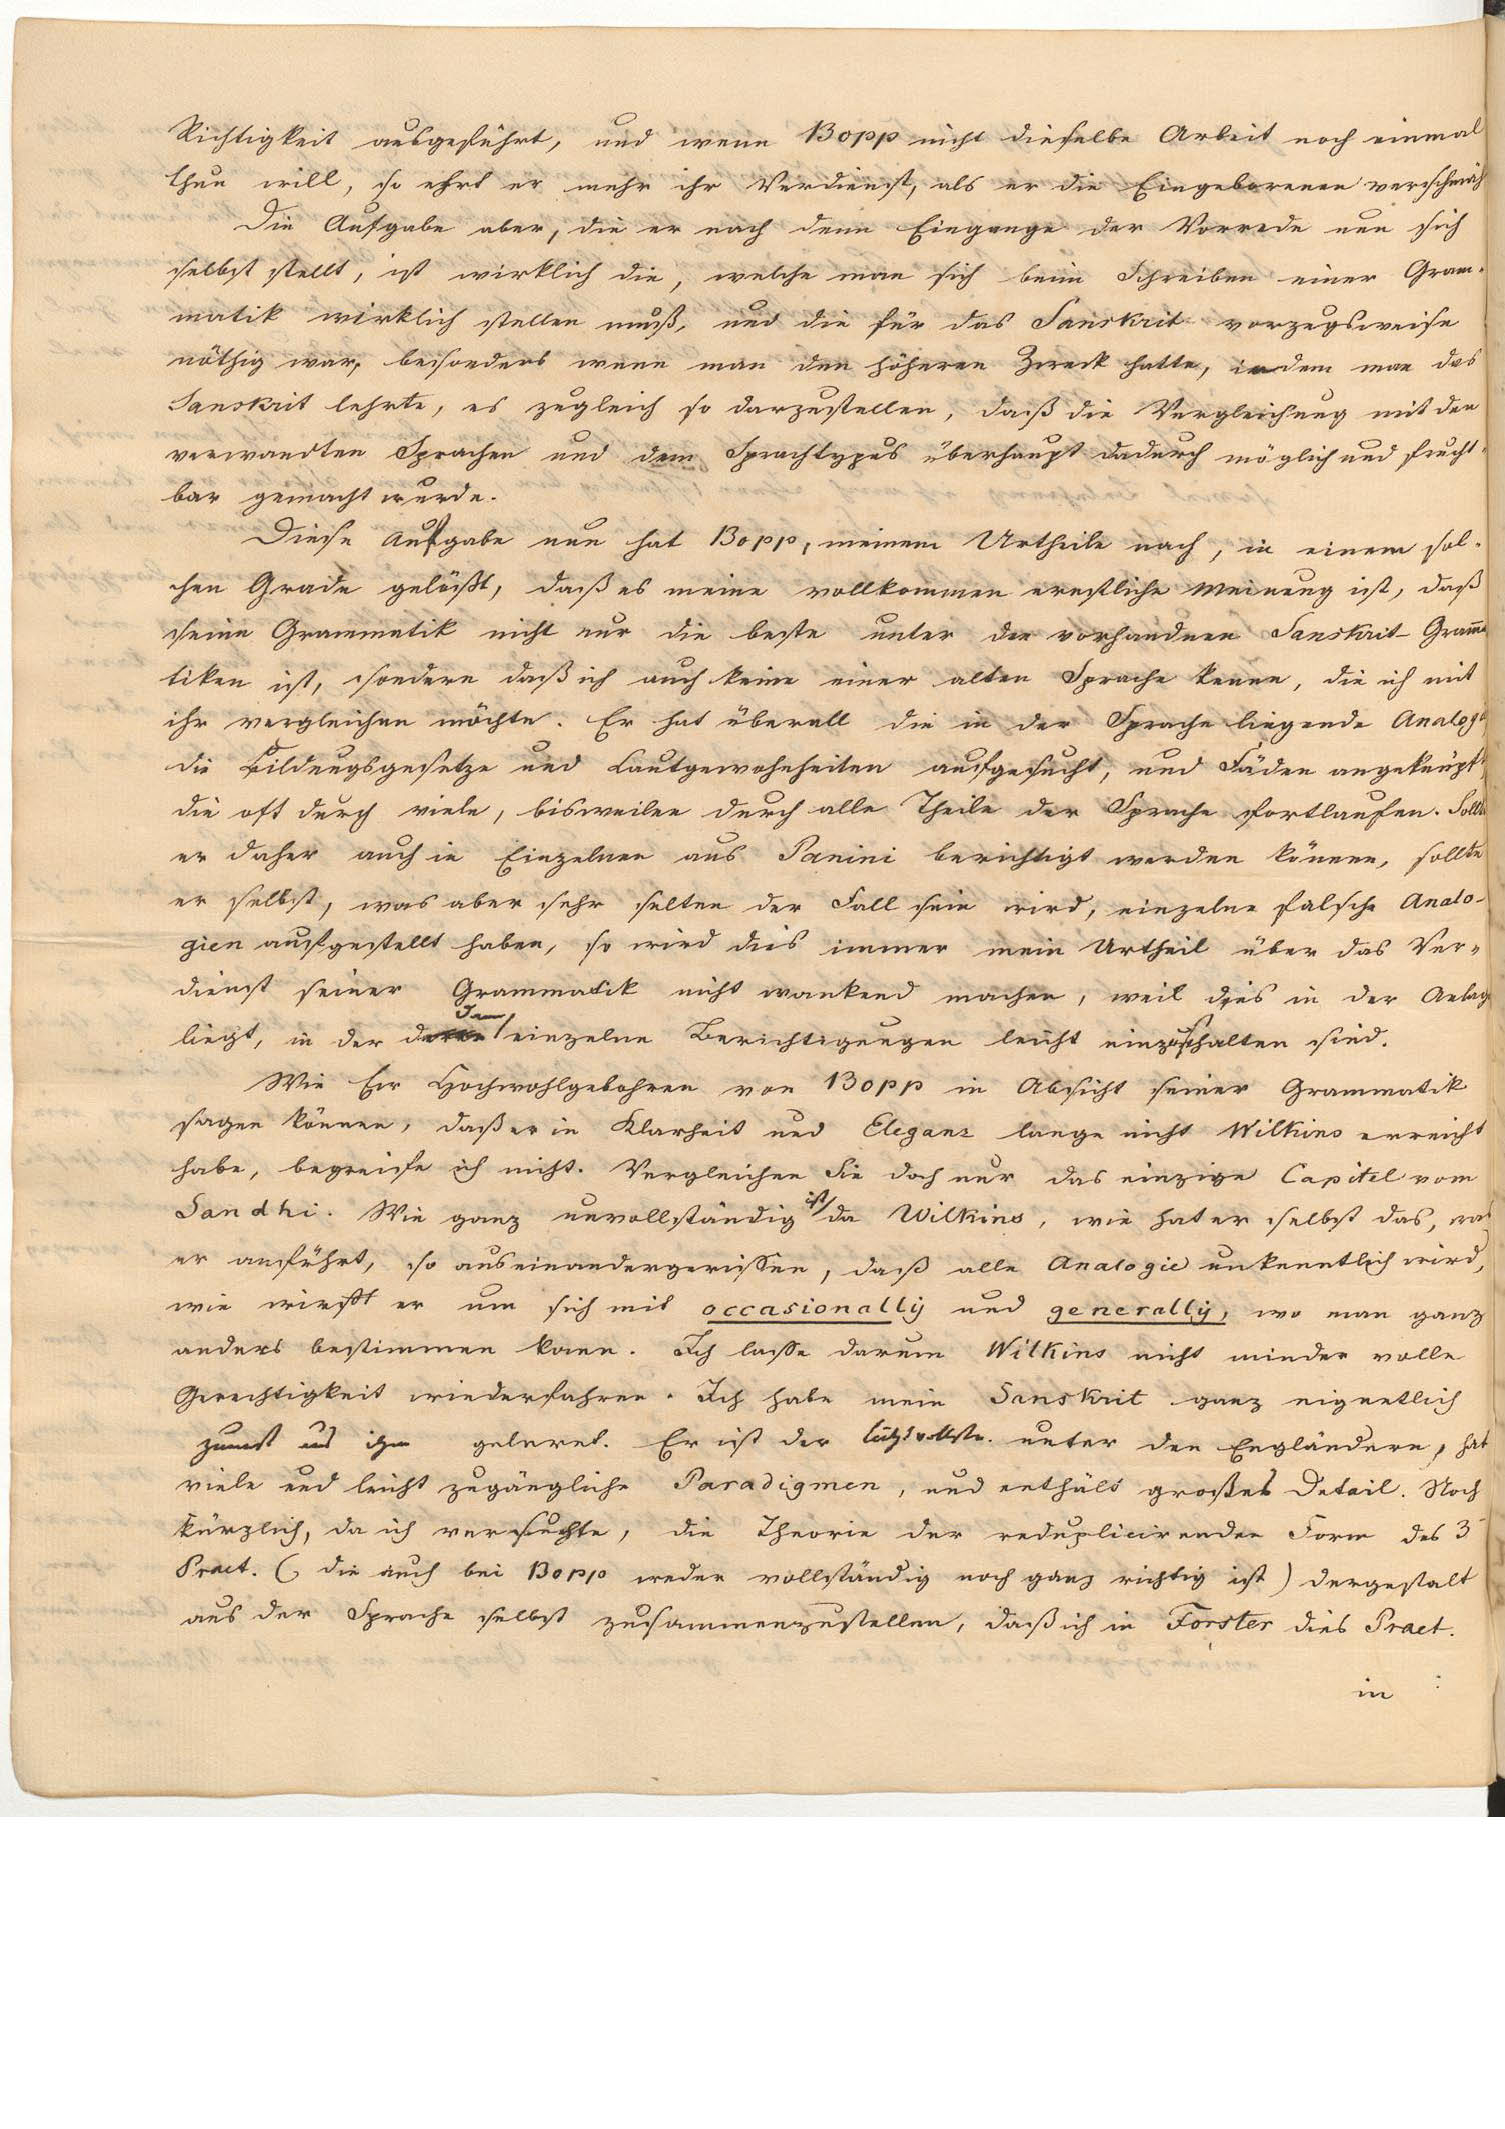 Richtigkeit ausgeführt, und wenn Bopp nicht dieselbe Arbeit noch einmal
thun will, so ehrt er mehr ihr Verdienst, als er die Eingeborenen verschmäh
Die Aufgabe aber, die er nach dem Eingange der Vorrede nun sich
selbst stellt, ist wirklich die, welche man sich beim Schreiben einer Gram-
matik wirklich stellen muß, und die für das Sanskrit vorzugsweise
nöthig war, besonders wenn man den höheren Zweck hatte, indem man das
Sanskrit lehrte, es zugleich so darzustellen, daß die Vergleichung mit den
verwandten Sprachen und dem Sprachtypus überhaupt dadurch möglich und frucht-
bar gemacht wurde.
Diese Aufgabe nun hat Bopp, meinem Urtheile nach, in einem sol-
chen Grade gelößt, daß es meine vollkommen ernstliche Meinung ist, daß
seine Grammatik nicht nur die beste unter den vorhandnen Sanskrit-Gramma
tiken ist, sondern daß ich auch keine einer alten Sprache kenne, die ich mit
ihr vergleichen möchte. Er hat überall die in der Sprache liegende Analogie
die Bildungsgesetze und Lautgewohnheiten aufgesucht, und Fäden angeknüpft,
die oft durch viele, bisweilen durch alle Theile der Sprache fortlaufen. Sollte
er daher auch in Einzelnen aus Panini berichtigt werden können, sollte
er selbst, was aber sehr selten der Fall sein wird, einzelne falsche Analo-
gien aufgestellt haben, so wird dies immer mein Urtheil über das Ver-
dienst seiner Grammatik nicht wankend machen, weil dies in der Anlage
liegt, in der dann einzelne Berichtigungen leicht einzuschalten sind.
Wie Ew Hochwohlgebohren von Bopp in Absicht seiner Grammatik
sagen können, daß er in Klarheit und Eleganz lange nicht Wilkins erreicht
habe, begreife ich nicht. Vergleichen Sie doch nur das einzige Capitel vom
Sandhi. Wie ganz unvollständig ist da Wilkins, wie hat er selbst das, was
er anführt, so auseinandergerissen, daß alle Analogie unkenntlich wird,
wie wirft er um sich mit occasionally und generally, wo man ganz
anders bestimmen kann. Ich lasse darum Wilkins nicht minder volle
Gerechtigkeit wiederfahren. Ich habe mein Sanskrit ganz eigentlich
zuerst aus ihm gelernt. Er ist der lichtvollste unter den Engländern, hat
viele und leicht zugängliche Paradigmen, und enthält großes Detail. Noch
kürzlich, da ich versuchte, die Theorie der reduplicirenden Form des 3
Praet. (die auch bei Bopp weder vollständig noch ganz richtig ist) dergestalt
aus der Sprache selbst zusammenzustellen, daß ich in Forster dies Praet.
in